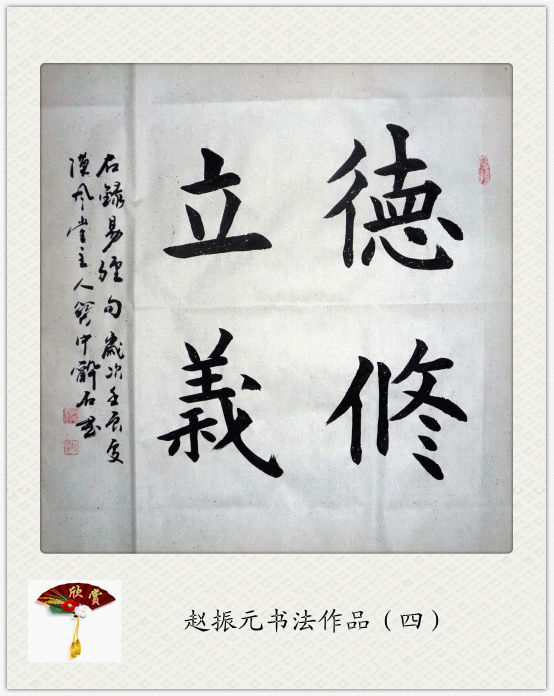 德修
立義
右録易經句歲次壬辰夏
漢风堂主人中酔石書
欣赏
赵振元书法作品（四）